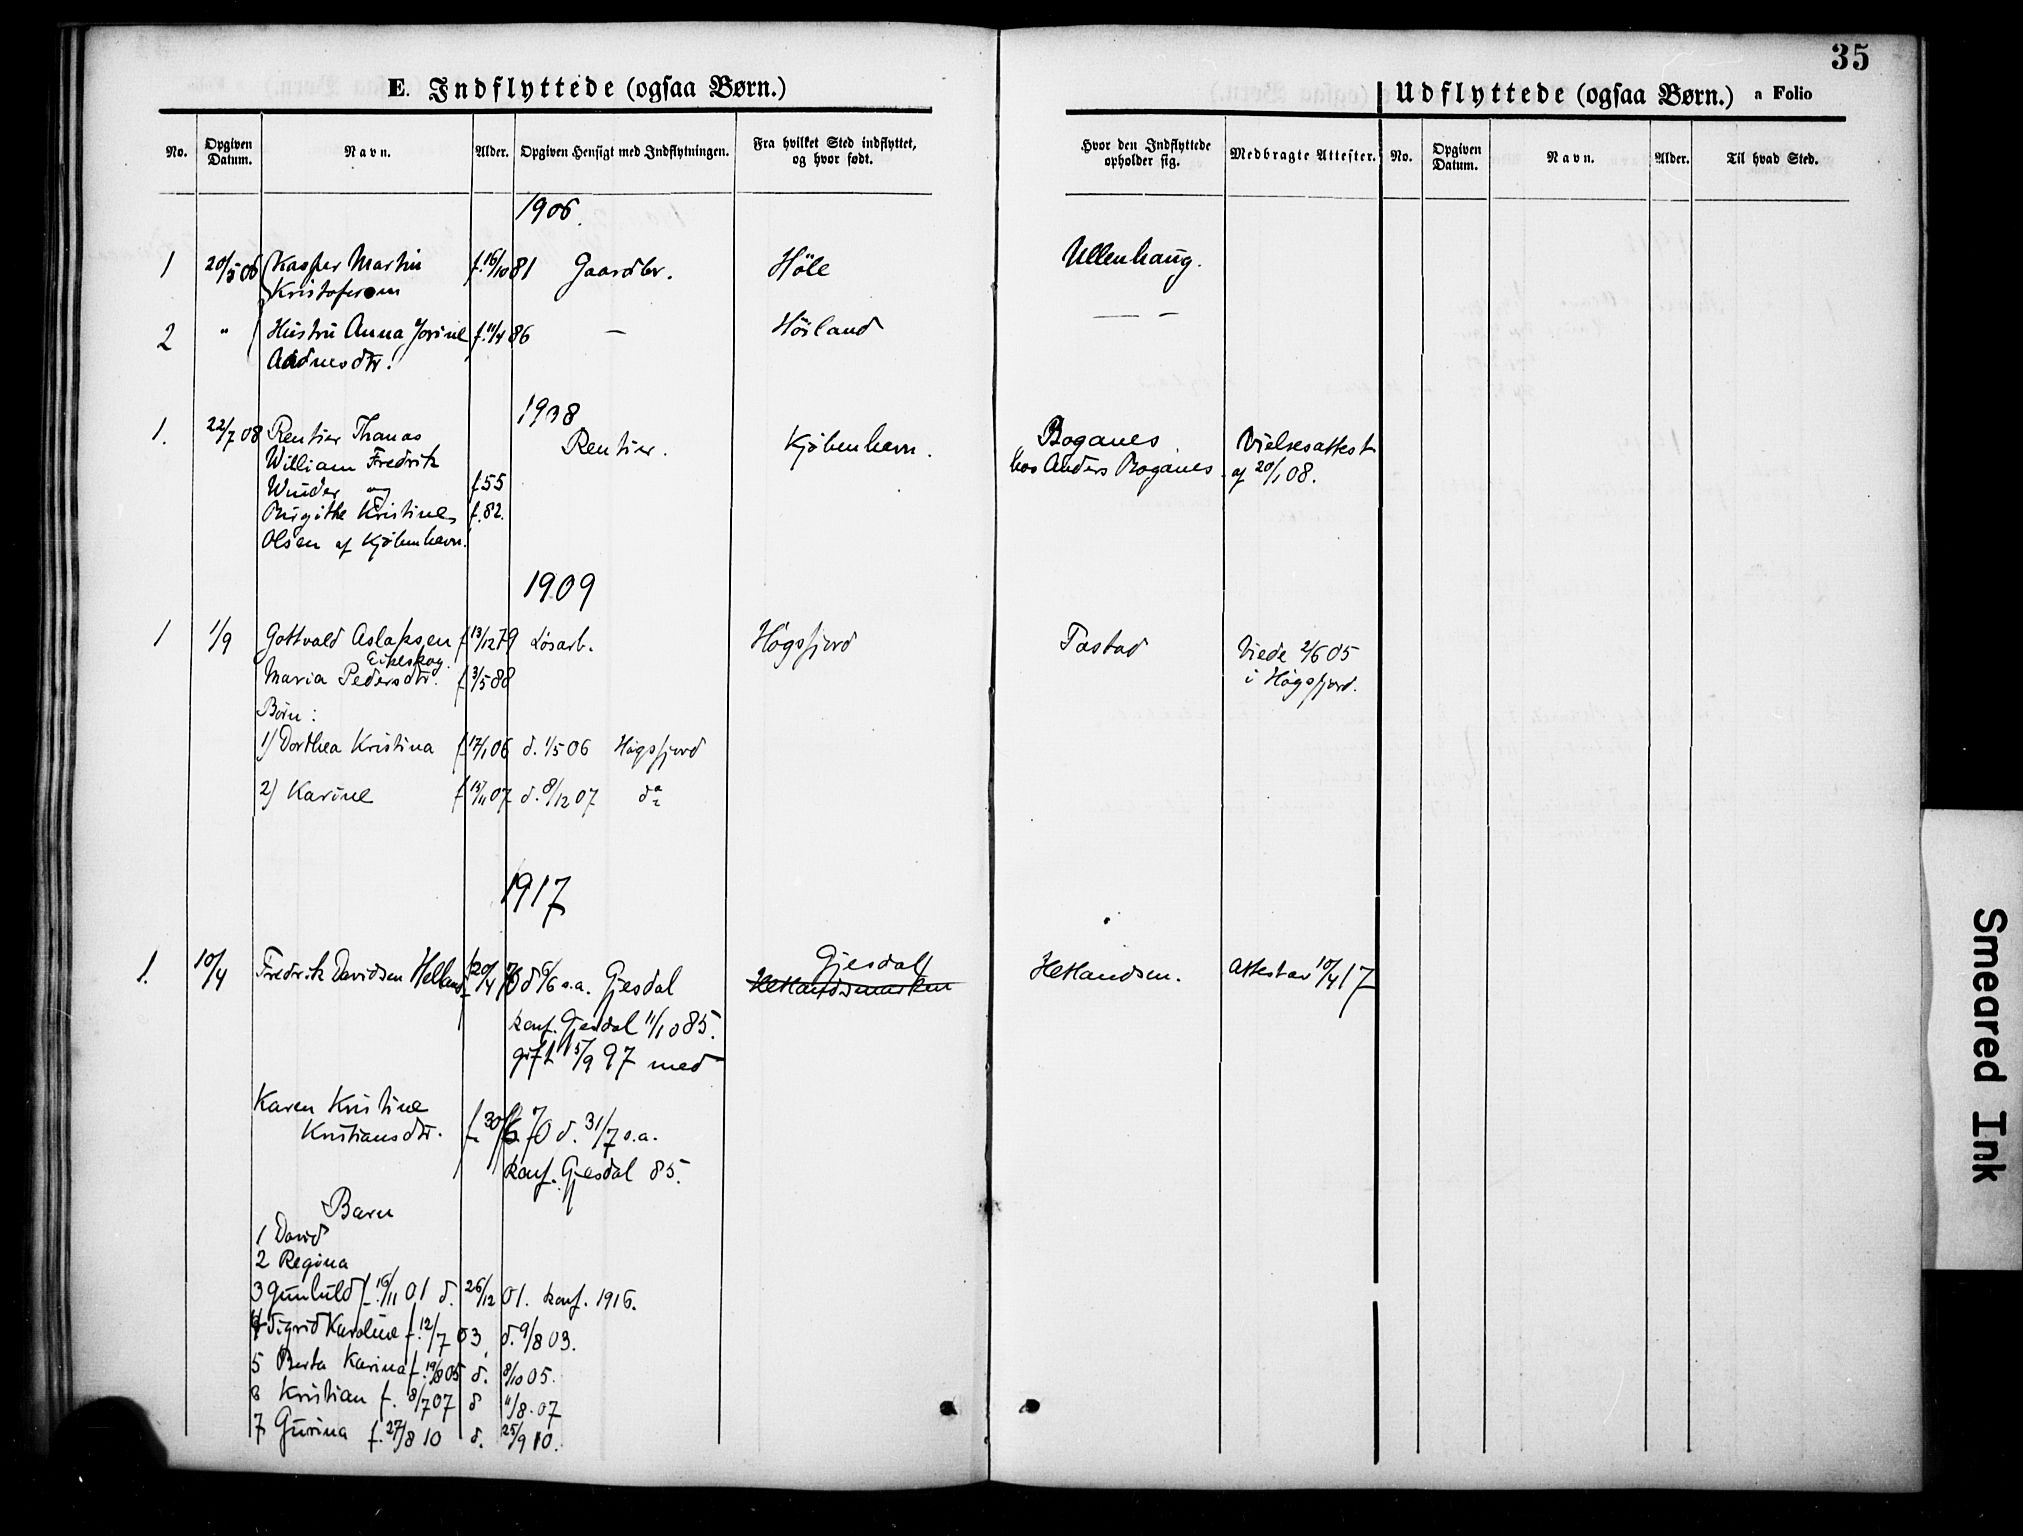 35
E. Indflyttede (ogsaa Børn.)
Udflyttede (ogsaa Børn.) a Folio
No. Opgiven Datum. Navn. Alder. Opgiven Hensigt med Indflytningen. Fra hvilket Sted indflyttet, og hvor født. Hvor den Indflyttede opholder sig. Medbragte Attester. No. Opgiven Datum. Navn. Alder. Til hvad Sted.
1906.
1 20/5 06 Kasper Martin f. 16/10 81 Gaardbr. Høle Ullenhaug.
Kristofersen
2 " Hustru Anna Jorine f. 11/4 86 — Høiland — —
Aadnesdtr.
1908
1. 22/7 08 Rentier Thomas Rentier. Kjøbenhavn. Boganes Vielsesattest
William Fredrik hos Anders Boganes af 20/1 08.
Winder og f. 55
Birgithe Kristine f. 82.
Olsen af Kjøbenhavn.
1909
1 1/9 Gottvald Aslaksen f 13/12 79 Løsarb. Høgsfjord Tastad Viede 2/6 05
Eikeskog.
Maria Pedersdtr. f 3/5 88 i Høgsfjord.
Børn:
1) Dorthea Kristina f 17/1 06 d. 1/5 06 Høgsfjord
2) Karine f 13/11 07 d. 8/12 07 do
1917
1. 10/4 Fredrik Davidsen Helland f 20/4 70 d 6/6 s.a. Gjesdal Gjesdal Hetlandsm. Attest av 10/4 17
Hetlandsmarken
konf. Gjesdal 11/10 85.
gift 15/9 97 med
Karen Kristine
Kristiansdtr. f. 30/6 70 d. 31/7 s.a.
konf. Gjesdal 85.
Barn
1 David
2 Regina
3 Gunhuld f. 16/11 01 d. 26/12 01. konf. 1916.
4 Sigrid Karoline f. 12/7 03, d. 9/8 03.
5 Berta Karina f. 19/8 05 d. 8/10 05.
6 Kristian f. 8/7 07 d 11/8. 07
7 Gurina f. 27/8 10 d. 25/9 10.
Smeared Ink